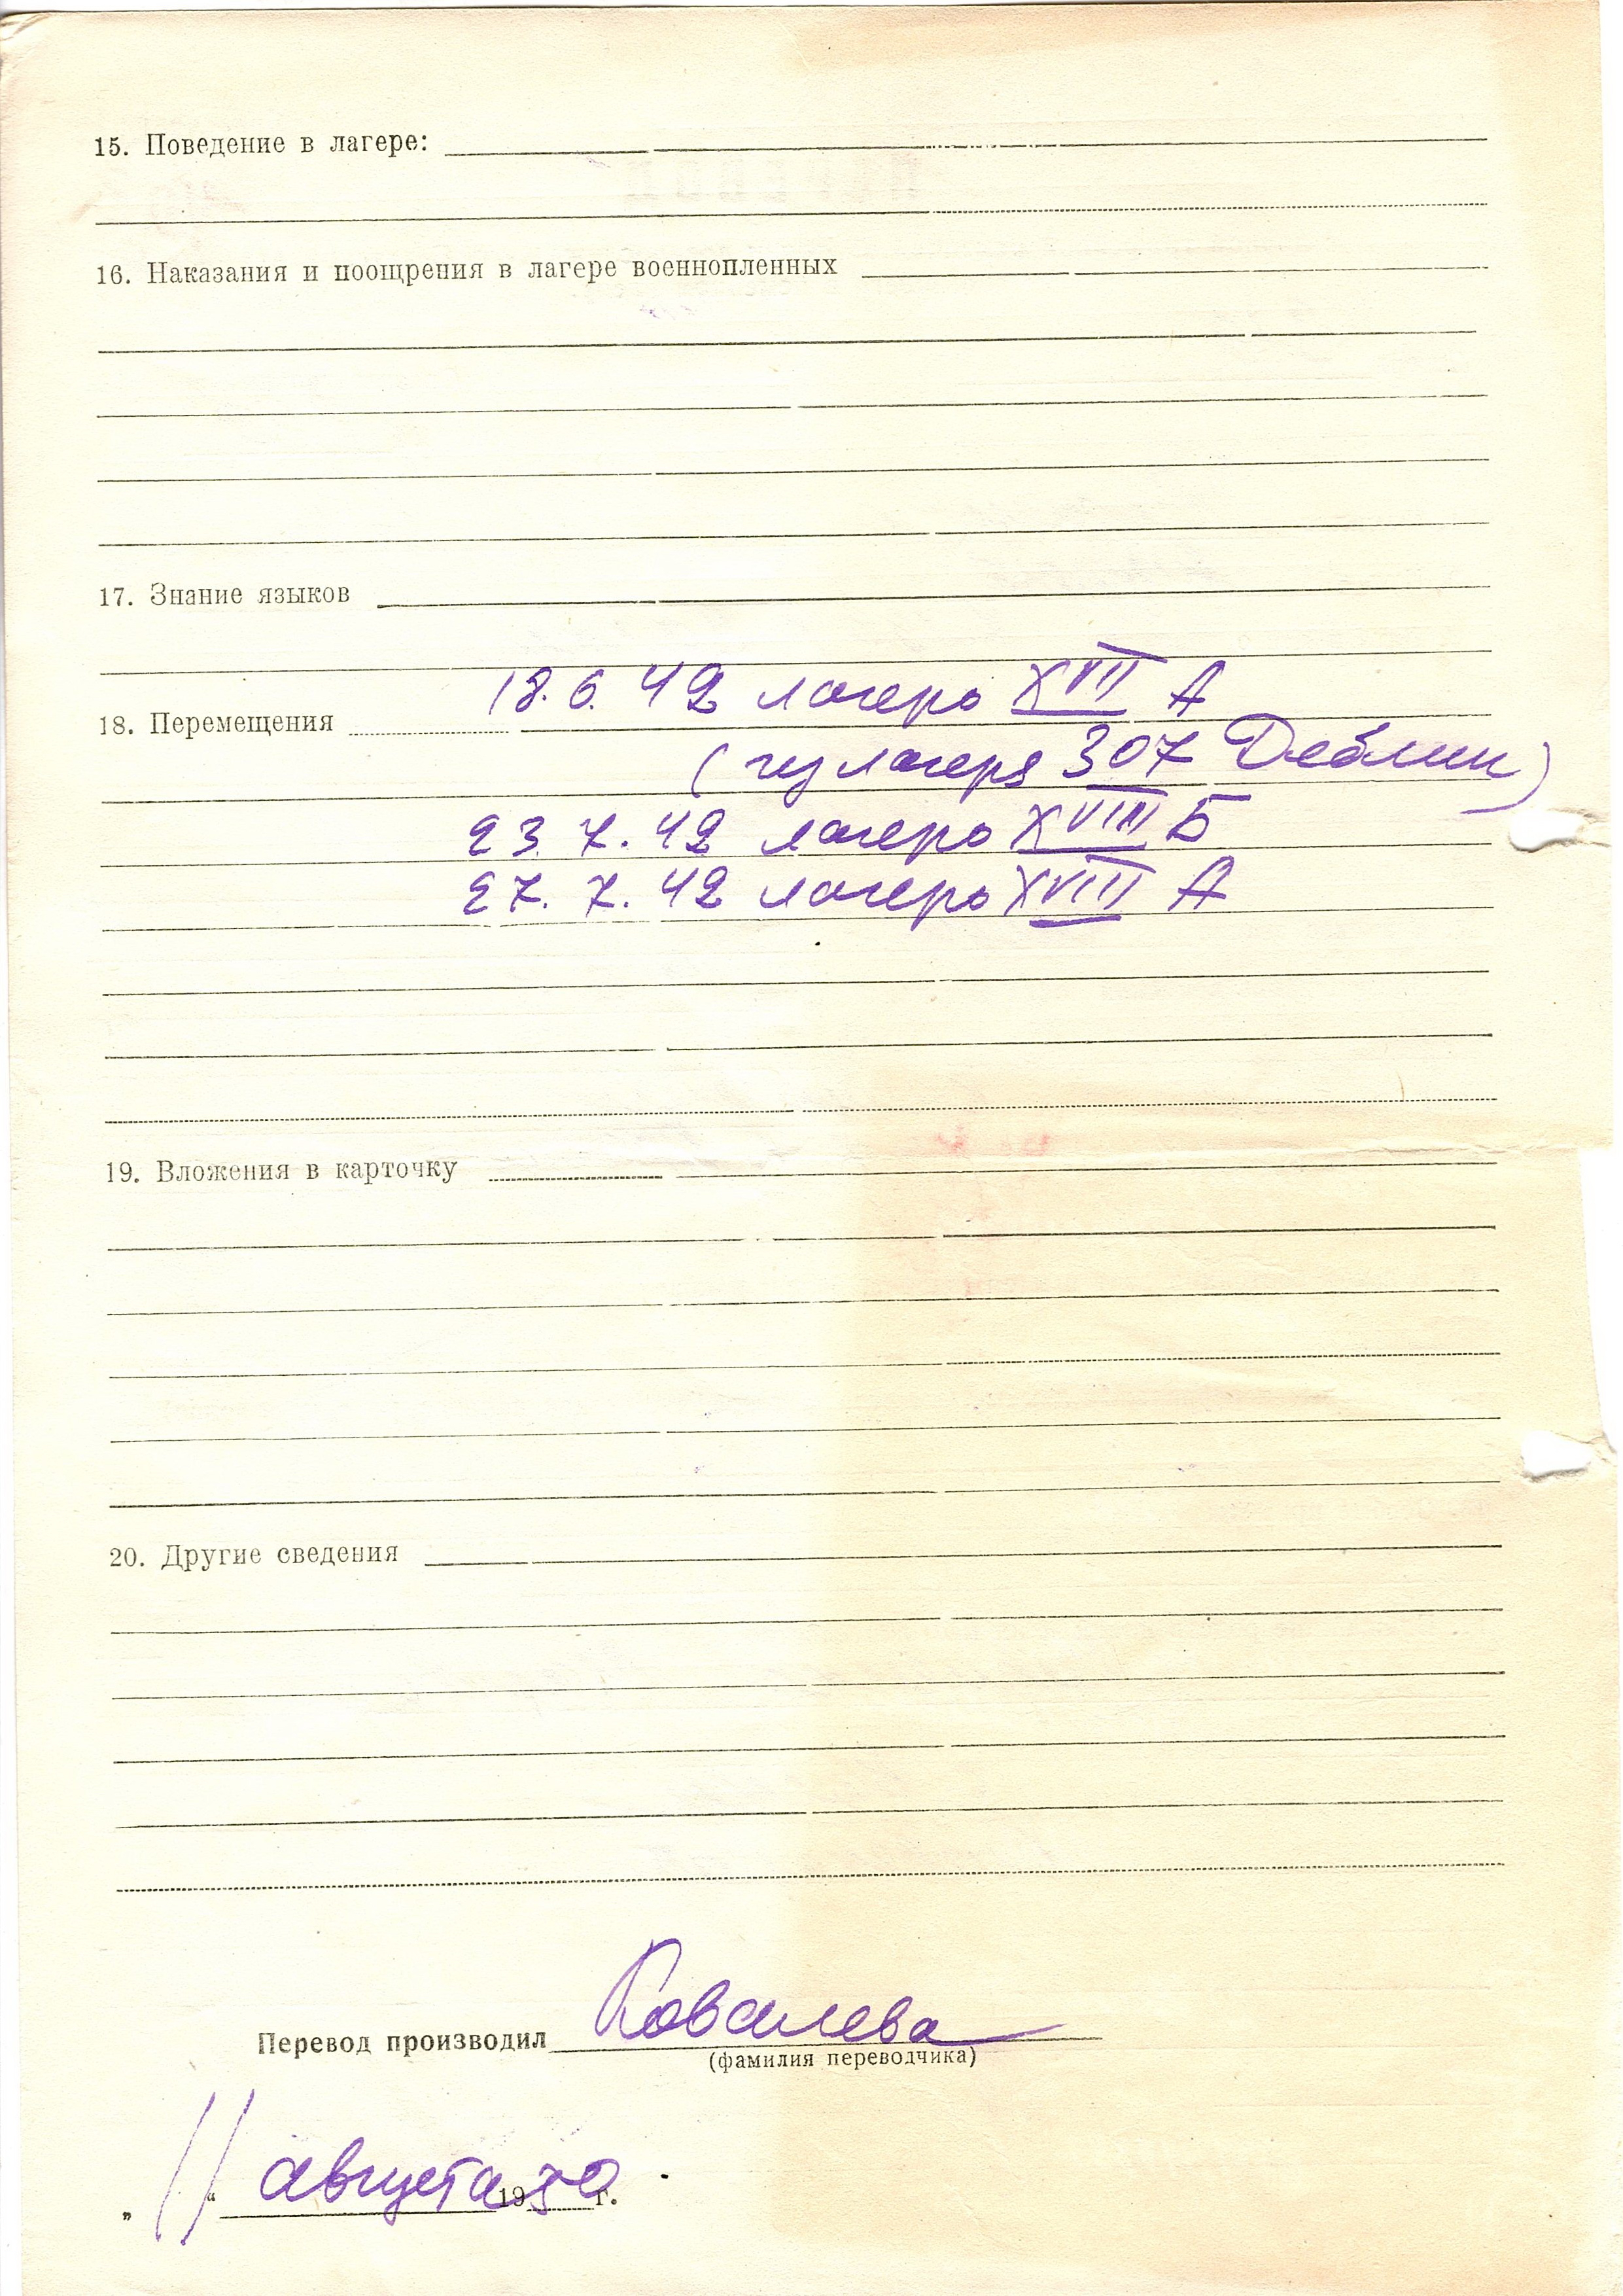 15. Поведение в лагере:
16. Наказания и поощрения в лагере военнопленных
17. Знание языков
18.6.42 лагерь XVII А
18. Перемещения
(из лагеря 307 Деблин)
23.7.42 лагерь XVIII Б
27.7.42 лагерь XVIII А
19. Вложения в карточку
20. Другие сведения
Перевод производил Ковалева
(фамилия переводчика)
„11“ августа 1950 г.